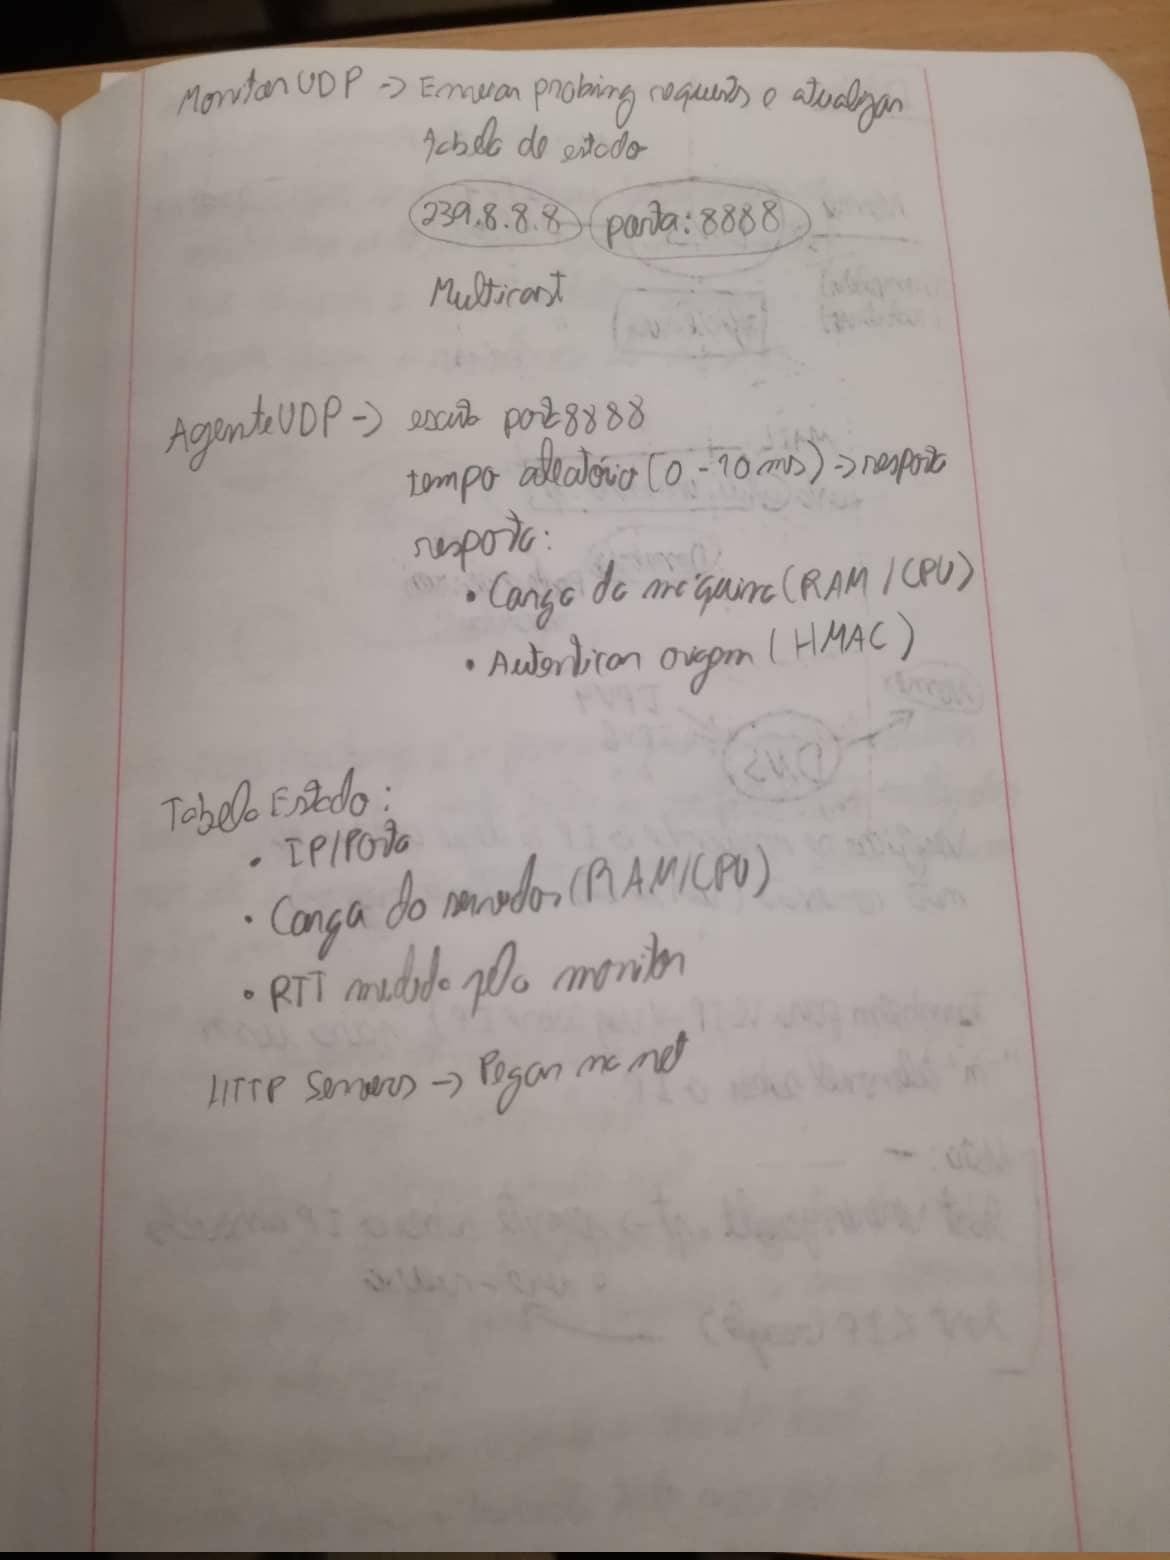 MonitorUDP -> Enviar probing requests e atualizar
tabela de estado
239.8.8.8 porta: 8888
Multicast
AgenteUDP -> escuta port 8888
tempo aleatório (0 - 10 ms) -> resposta
resposta:
• Carga da máquina (RAM / CPU)
• Autenticar origem (HMAC)
Tabela Estado:
• IP/Porta
• Carga do servidor (RAM/CPU)
• RTT medido pelo monitor
HTTP Servers -> Pegar na net